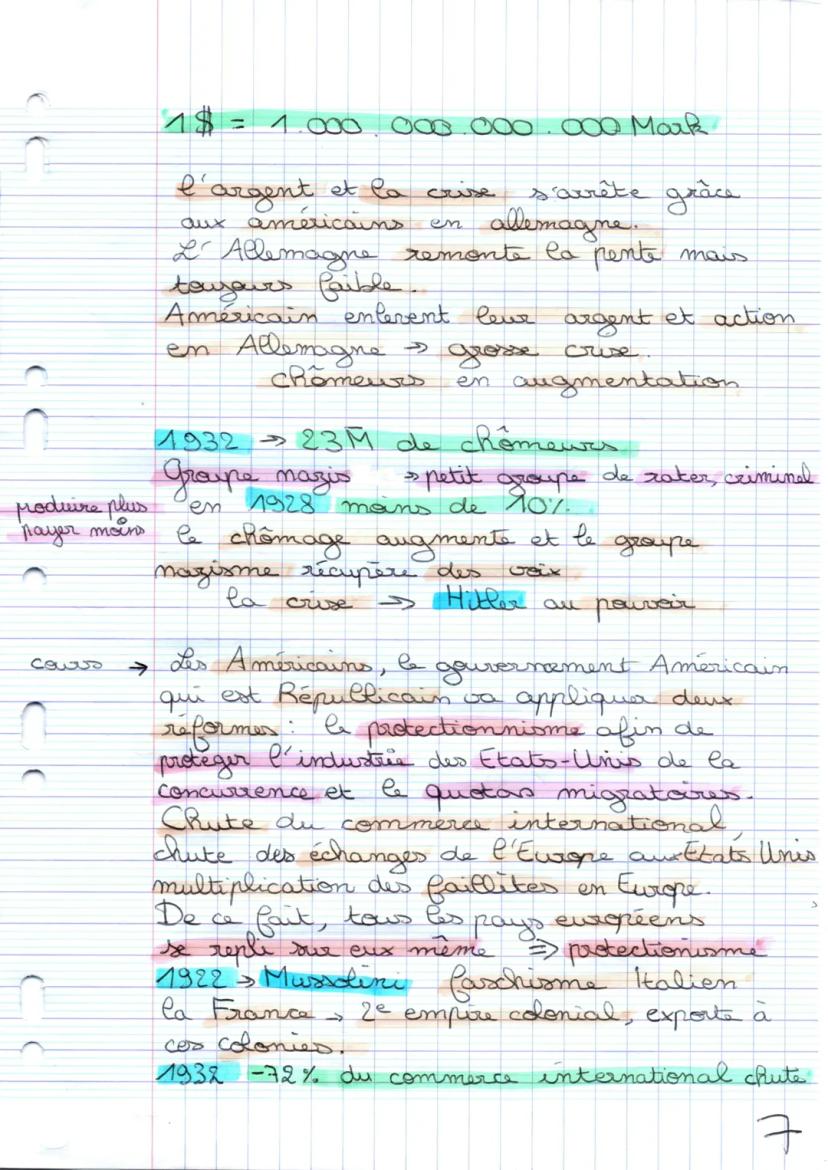 1$ = 1.000.000.000.000 Mark
l'argent et la crise s'arrête grâce
aux américains en allemagne.
L'Allemagne remonte la pente mais
toujours faible.
Américain enlèvent leur argent et action
en Allemagne → grosse crise.
chômeurs en augmentation
1932 → 23M de chômeurs
Groupe nazis → petit groupe de rater, criminel
produire plus
payer moins
en 1928 moins de 10%.
le chômage augmente et le groupe
nazisme récupère des voix
la crise → Hitler au pouvoir
cours → Les Américains, le gouvernement Américain
qui est Républicain va appliquer deux
réformes : le protectionnisme afin de
protéger l'industrie des Etats-Unis de la
concurrence et le quotas migratoires.
Chute du commerce international,
chute des échanges de l'Europe aux Etats Unis
multiplication des faillites en Europe.
De ce fait, tous les pays européens
se repli sur eux même ⇒ protectionisme
1922 → Mussolini faschisme Italien
la France → 2e empire colonial, exporte à
ces colonies.
1932 -72% du commerce international chute
7